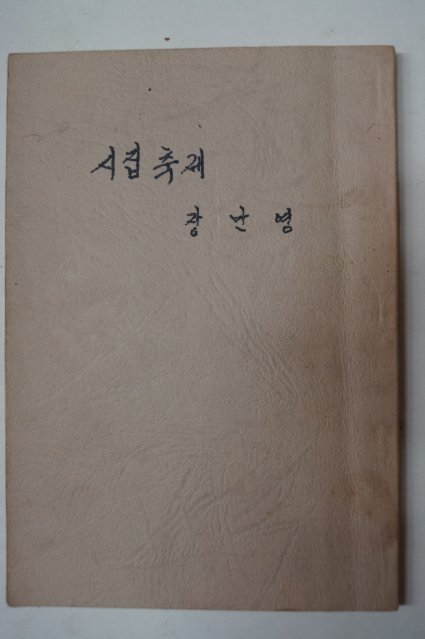 시집 축제
장 난 영